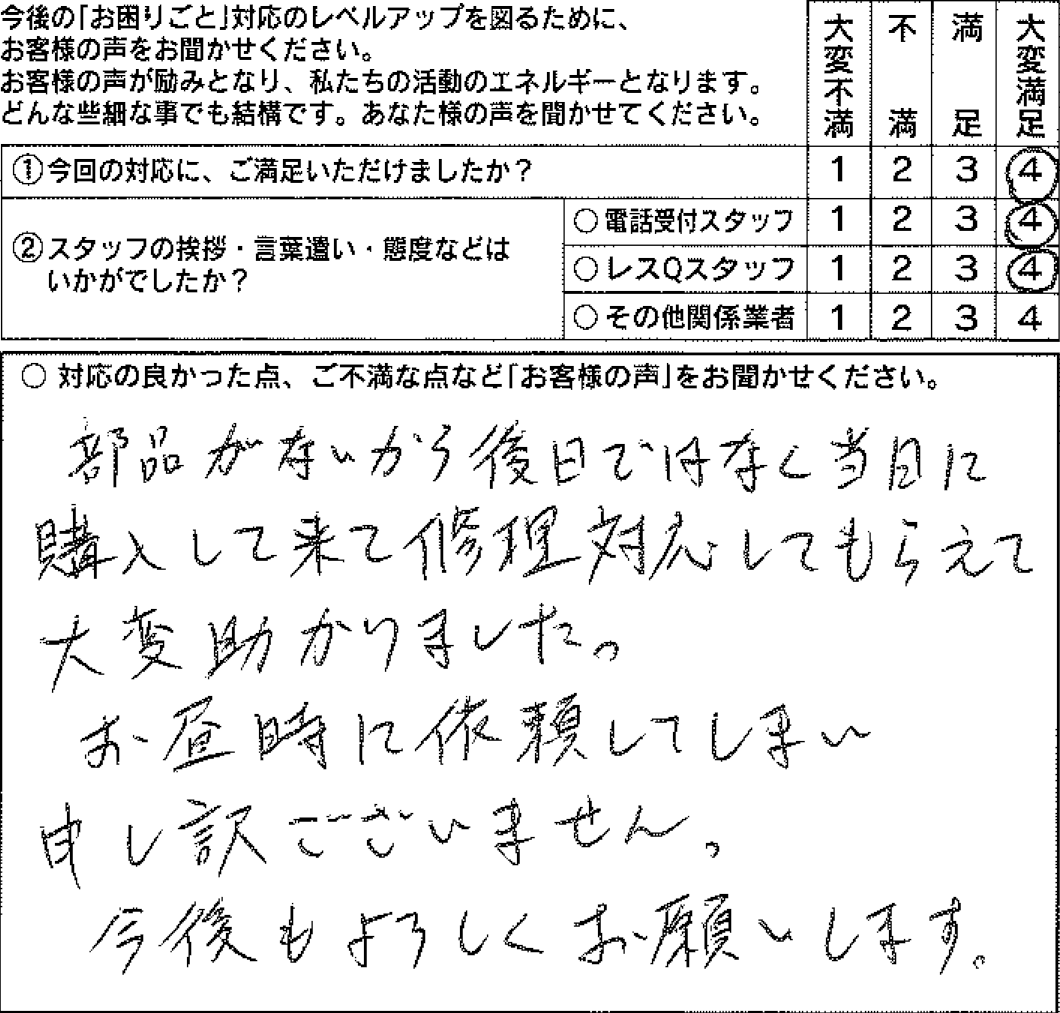 今後の「お困りごと」対応のレベルアップを図るために、
お客様の声をお聞かせください。
お客様の声が励みとなり、私たちの活動のエネルギーとなります。
どんな些細な事でも結構です。あなた様の声を聞かせてください。
大変不満 不満 満足 大変満足
①今回の対応に、ご満足いただけましたか？ 1 2 3 4
②スタッフの挨拶・言葉遣い・態度などは
いかがでしたか？
○電話受付スタッフ 1 2 3 4
○レスQスタッフ 1 2 3 4
○その他関係業者 1 2 3 4
○ 対応の良かった点、ご不満な点など「お客様の声」をお聞かせください。
部品がないから後日ではなく当日に
購入して来て修理対応してもらえて
大変助かりました。
お昼時に依頼してしまい
申し訳ございません。
今後もよろしくお願いします。